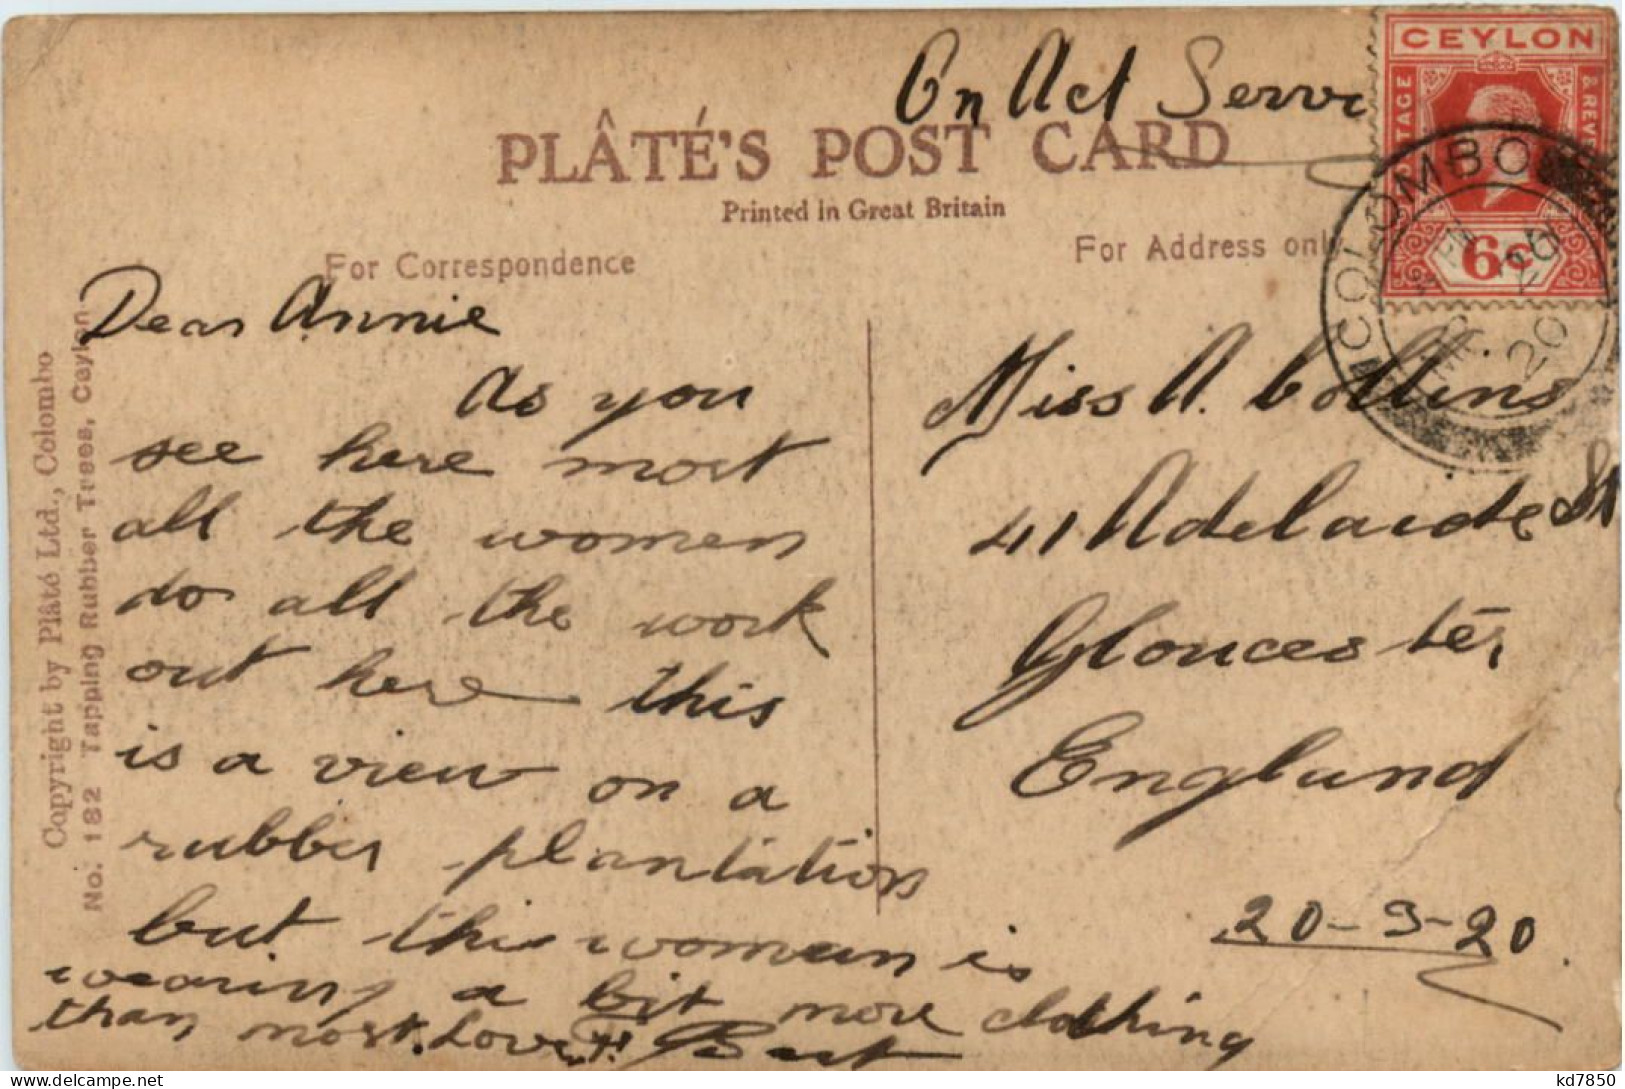 On Act Servi
CEYLON
POSTAGE
& REV
6c
COLOMBO
26
20
PLÂTÉ'S POST CARD
Printed in Great Britain
For Correspondence
For Address only
Copyright by Plâté Ltd., Colombo
No. 182 Tapping Rubber Trees, Ceylon
Dear Annie
As you
see here most
all the women
do all the work
out here this
is a view on a
rubber plantation
but this woman is
wearing a bit more clothing
than most. Love Bert
Miss A. Collins
41 Adelaide St
Gloucester
England
20-3-20.
kd7850